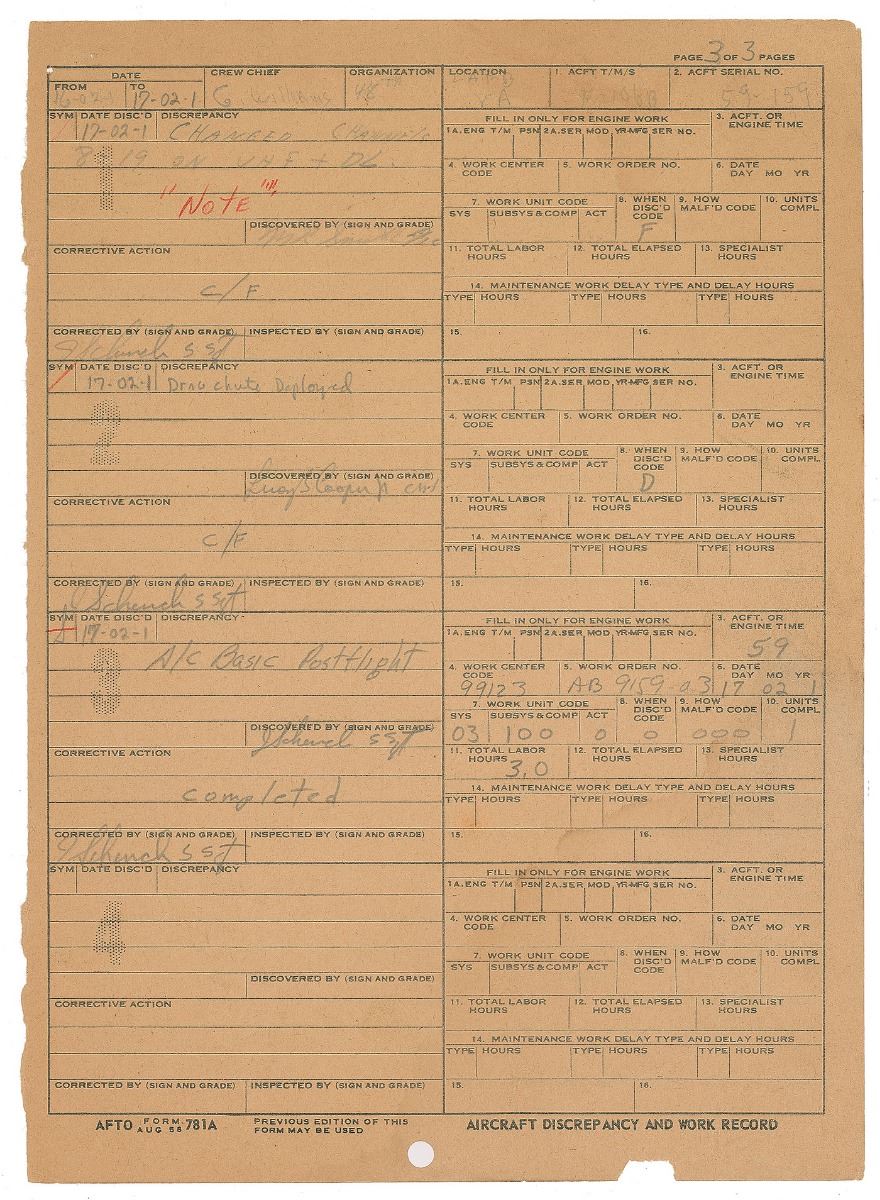 PAGE 3 OF 3 PAGES
DATE
FROM TO
17-02-1
CREW CHIEF
G Williams
ORGANIZATION
48TH
LOCATION
VA
1. ACFT T/M/S
2. ACFT SERIAL NO.
59-159
SYM DATE DISC'D DISCREPANCY
17-02-1 CHANGED CHANNELS
8 19 ON UHF + DL.
1
"NOTE"
DISCOVERED BY (SIGN AND GRADE)
CORRECTIVE ACTION
C/F
CORRECTED BY (SIGN AND GRADE) INSPECTED BY (SIGN AND GRADE)
J Schenck S Sgt
FILL IN ONLY FOR ENGINE WORK
1A. ENG T/M PSN 2A. SER MOD YR-MFG SER NO.
3. ACFT. OR ENGINE TIME
4. WORK CENTER CODE
5. WORK ORDER NO.
6. DATE
DAY MO YR
7. WORK UNIT CODE
SYS SUBSYS & COMP ACT
8. WHEN DISC'D CODE
F
9. HOW MALF'D CODE
10. UNITS COMPL
11. TOTAL LABOR HOURS
12. TOTAL ELAPSED HOURS
13. SPECIALIST HOURS
14. MAINTENANCE WORK DELAY TYPE AND DELAY HOURS
TYPE HOURS TYPE HOURS TYPE HOURS
15. 16.
SYM DATE DISC'D DISCREPANCY
/ 17-02-1 Drag chute Deployed
2
DISCOVERED BY (SIGN AND GRADE)
CORRECTIVE ACTION
C/F
CORRECTED BY (SIGN AND GRADE) INSPECTED BY (SIGN AND GRADE)
J Schenck S Sgt
FILL IN ONLY FOR ENGINE WORK
1A. ENG T/M PSN 2A. SER MOD YR-MFG SER NO.
3. ACFT. OR ENGINE TIME
4. WORK CENTER CODE
5. WORK ORDER NO.
6. DATE
DAY MO YR
7. WORK UNIT CODE
SYS SUBSYS & COMP ACT
8. WHEN DISC'D CODE
D
9. HOW MALF'D CODE
10. UNITS COMPL
11. TOTAL LABOR HOURS
12. TOTAL ELAPSED HOURS
13. SPECIALIST HOURS
14. MAINTENANCE WORK DELAY TYPE AND DELAY HOURS
TYPE HOURS TYPE HOURS TYPE HOURS
15. 16.
SYM DATE DISC'D DISCREPANCY
17-02-1
A/C Basic Postflight
3
DISCOVERED BY (SIGN AND GRADE)
J Schenck S Sgt
CORRECTIVE ACTION
completed
CORRECTED BY (SIGN AND GRADE) INSPECTED BY (SIGN AND GRADE)
J Schenck S Sgt
FILL IN ONLY FOR ENGINE WORK
1A. ENG T/M PSN 2A. SER MOD YR-MFG SER NO.
3. ACFT. OR ENGINE TIME
59
4. WORK CENTER CODE
99123
5. WORK ORDER NO.
AB 9159-03
6. DATE
DAY MO YR
17 02 1
7. WORK UNIT CODE
SYS SUBSYS & COMP ACT
03 100 0
8. WHEN DISC'D CODE
0
9. HOW MALF'D CODE
000
10. UNITS COMPL
1
11. TOTAL LABOR HOURS
3.0
12. TOTAL ELAPSED HOURS
13. SPECIALIST HOURS
14. MAINTENANCE WORK DELAY TYPE AND DELAY HOURS
TYPE HOURS TYPE HOURS TYPE HOURS
15. 16.
SYM DATE DISC'D DISCREPANCY
4
DISCOVERED BY (SIGN AND GRADE)
CORRECTIVE ACTION
CORRECTED BY (SIGN AND GRADE) INSPECTED BY (SIGN AND GRADE)
FILL IN ONLY FOR ENGINE WORK
1A. ENG T/M PSN 2A. SER MOD YR-MFG SER NO.
3. ACFT. OR ENGINE TIME
4. WORK CENTER CODE
5. WORK ORDER NO.
6. DATE
DAY MO YR
7. WORK UNIT CODE
SYS SUBSYS & COMP ACT
8. WHEN DISC'D CODE
9. HOW MALF'D CODE
10. UNITS COMPL
11. TOTAL LABOR HOURS
12. TOTAL ELAPSED HOURS
13. SPECIALIST HOURS
14. MAINTENANCE WORK DELAY TYPE AND DELAY HOURS
TYPE HOURS TYPE HOURS TYPE HOURS
15. 16.
AFTO FORM AUG 58 781A
PREVIOUS EDITION OF THIS FORM MAY BE USED
AIRCRAFT DISCREPANCY AND WORK RECORD